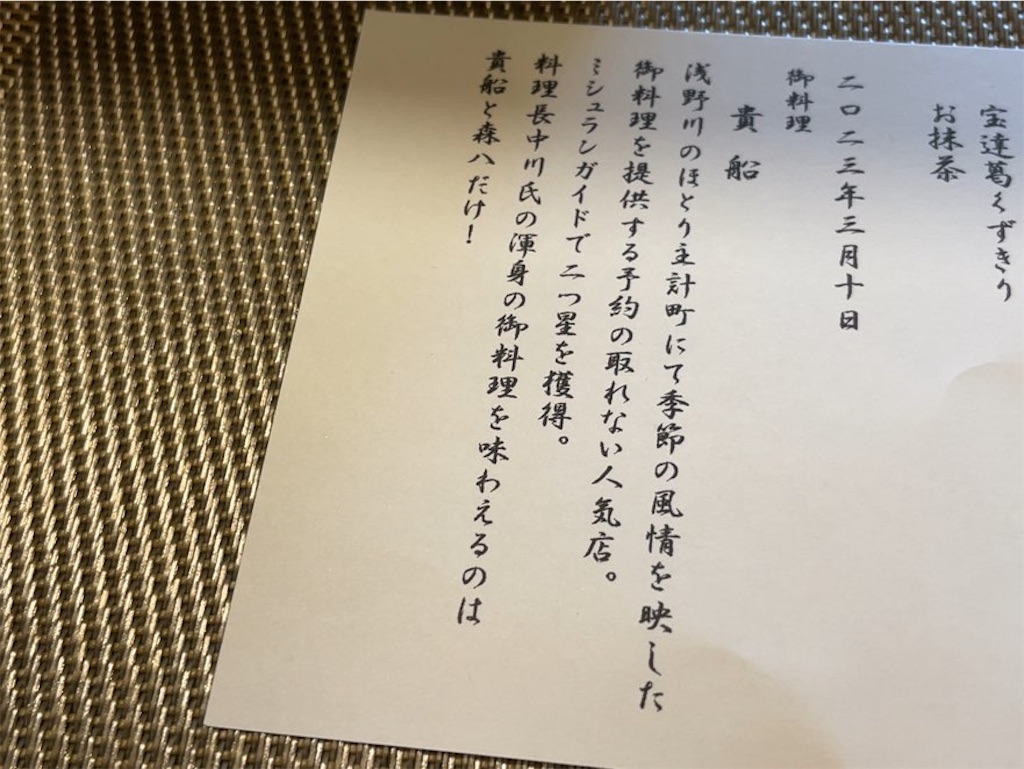 宝達葛くずきり
お抹茶
二〇二三年三月十日
御料理
貴船
浅野川のほとり主計町にて季節の風情を映した
御料理を提供する予約の取れない人気店。
ミシュランガイドで二つ星を獲得。
料理長中川氏の渾身の御料理を味わえるのは
貴船と森八だけ！